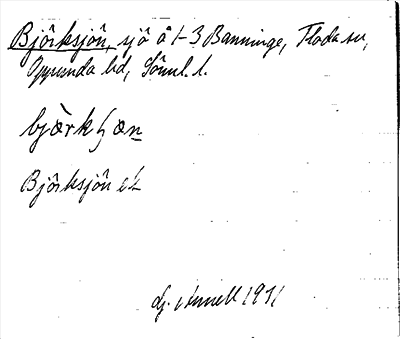 Björksjön, sjö å 1-3 Banninge, Floda sn,
Oppunda hd, Söml. l.
bjærkʃæn
Björksjön ek
dj. Arnell 1971